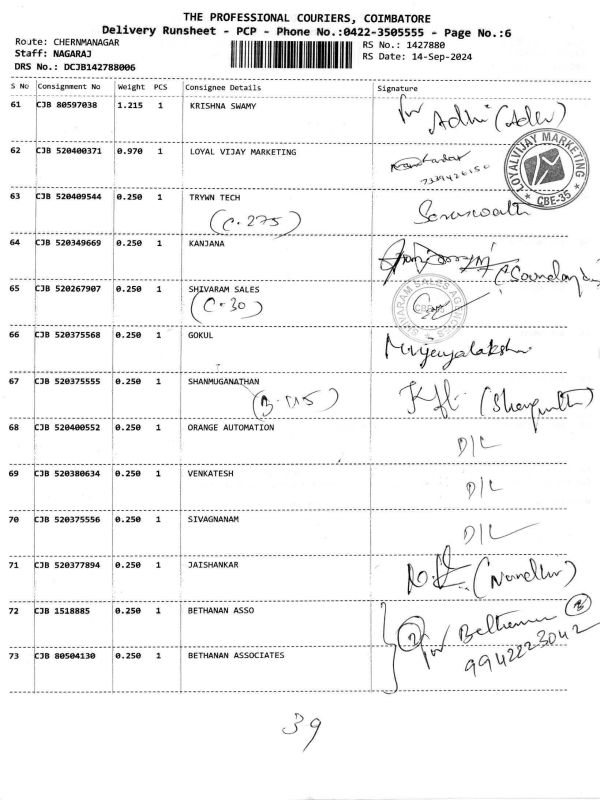 THE PROFESSIONAL COURIERS, COIMBATORE
Delivery Runsheet - PCP - Phone No.:0422-3505555 - Page No.:6
Route: CHERNMANAGAR
RS No.: 1427880
Staff: NAGARAJ
RS Date: 14-Sep-2024
DRS No.: DCJB142788006
S No Consignment No Weight PCS Consignee Details Signature
61 CJB 80597038 1.215 1 KRISHNA SWAMY
62 CJB 520400371 0.970 1 LOYAL VIJAY MARKETING
LOYALVIJAY MARKETING
★ CBE-35 ★
63 CJB 520409544 0.250 1 TRYWN TECH
(C-275)
64 CJB 520349669 0.250 1 KANJANA
65 CJB 520267907 0.250 1 SHIVARAM SALES
(C-30)
SHIVARAM SALES AGENCIES
66 CJB 520375568 0.250 1 GOKUL
67 CJB 520375555 0.250 1 SHANMUGANATHAN
68 CJB 520400552 0.250 1 ORANGE AUTOMATION D/L
69 CJB 520380634 0.250 1 VENKATESH D/L
70 CJB 520375556 0.250 1 SIVAGNANAM D/L
71 CJB 520377894 0.250 1 JAISHANKAR
72 CJB 1518885 0.250 1 BETHANAN ASSO
9942223042
73 CJB 80504130 0.250 1 BETHANAN ASSOCIATES
39